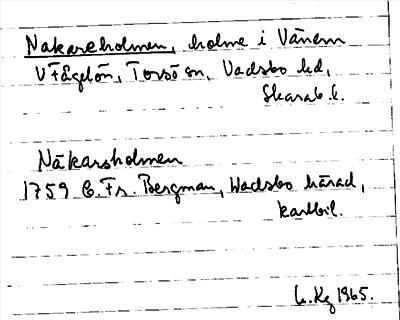 Nakareholmen, holme i Vänern
V Fågelön, Torsö sn, Vadsbo hd,
Skarab. l.
Nåkarsholmen
1759 C. Fr. Bergman, Wadsbo härad,
kartbil.
1965.